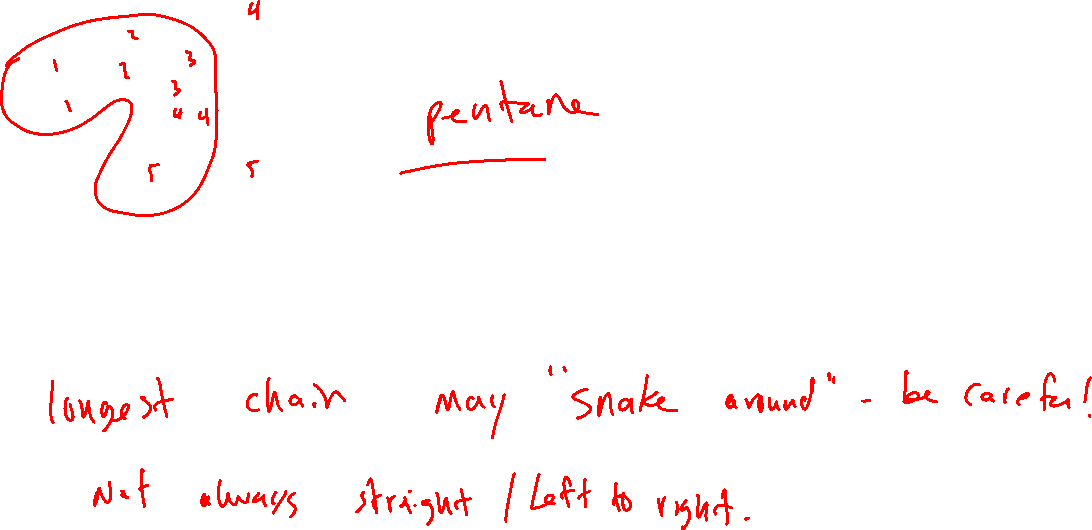 4
2
1 2 3
3
1 4 4
5 5
pentane
longest chain may "snake around" - be careful!
Not always straight / Left to right.